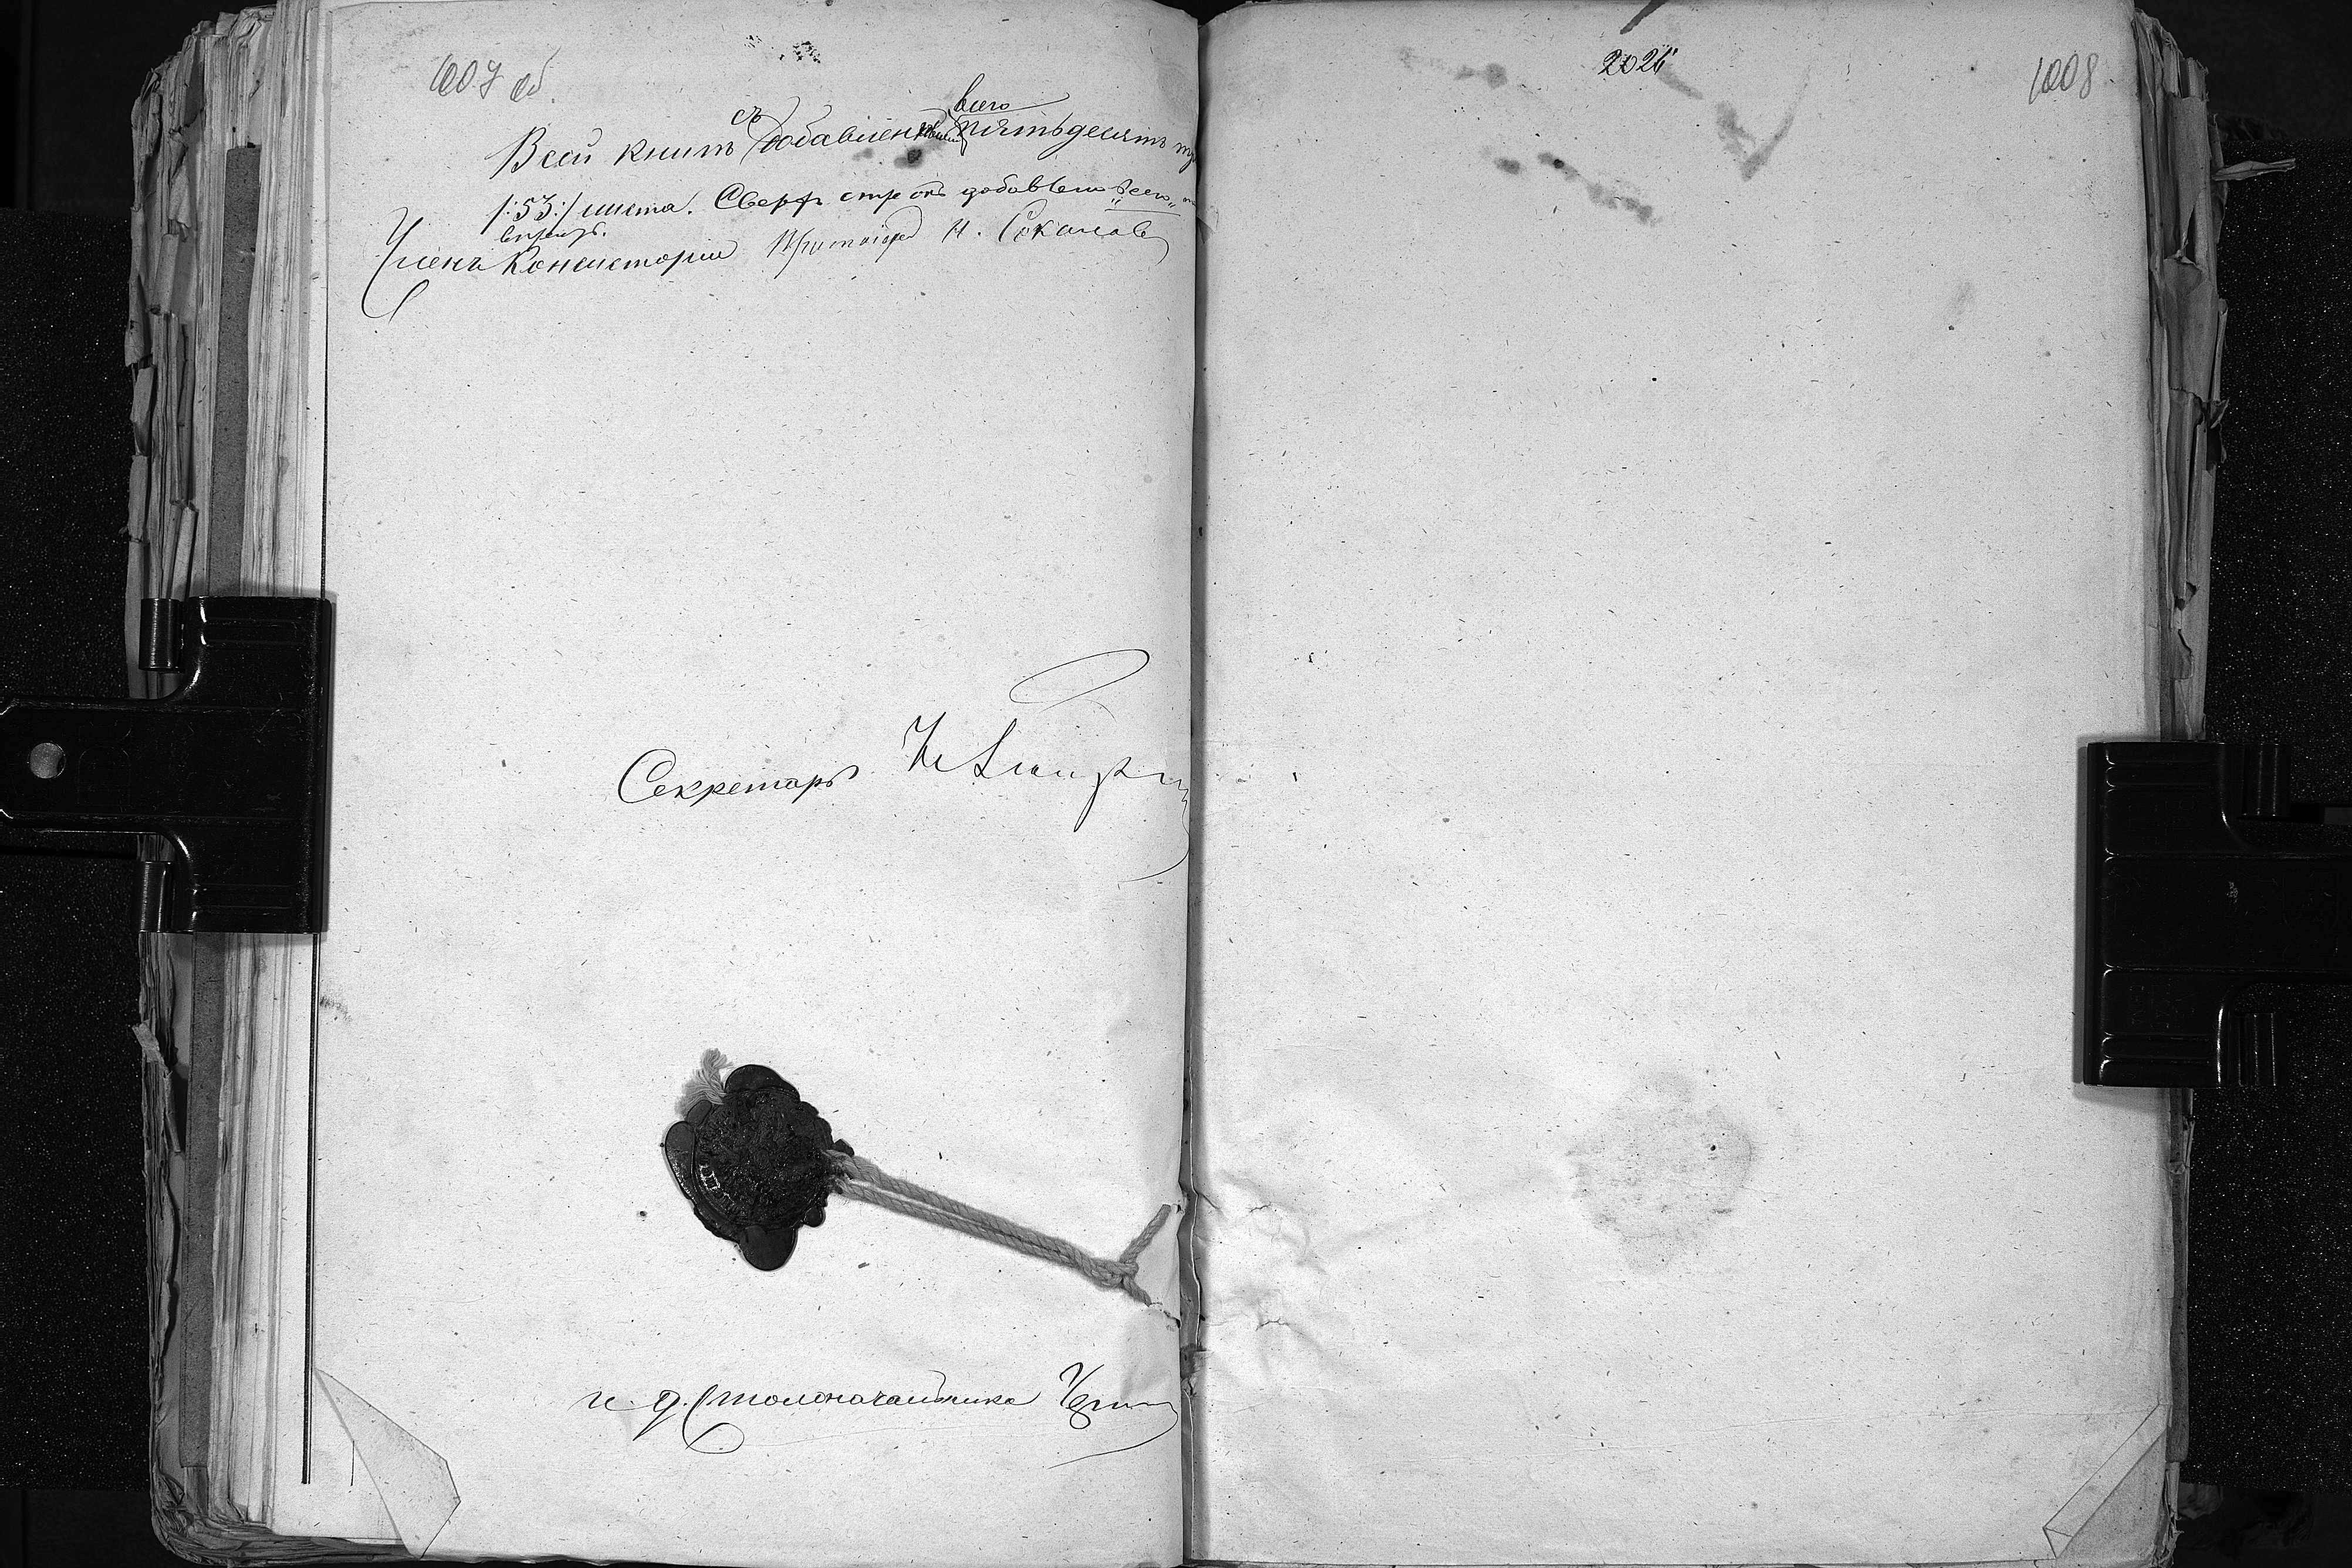 1007 об.
Всей книгѣ съ добавленными всего пятьдесятъ
/:53:/ листа. Сверхъ строкъ добавлено „всего„
вѣрнымъ.
Членъ Консисторіи Протоіерей Н. Соколовъ
Секретарь
и. д. Столоначальника
2026
1008